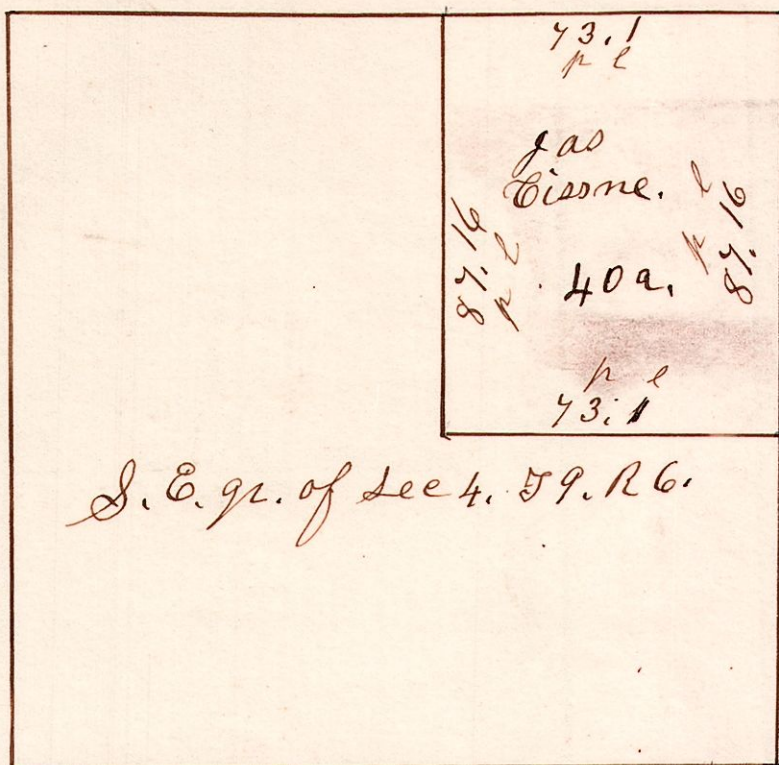 73.1
p l
Jas
Cissne.
87.16
p l
87.16
p l
40a.
p l
73.1
S.E. qr. of Sec 4. T9. R6.